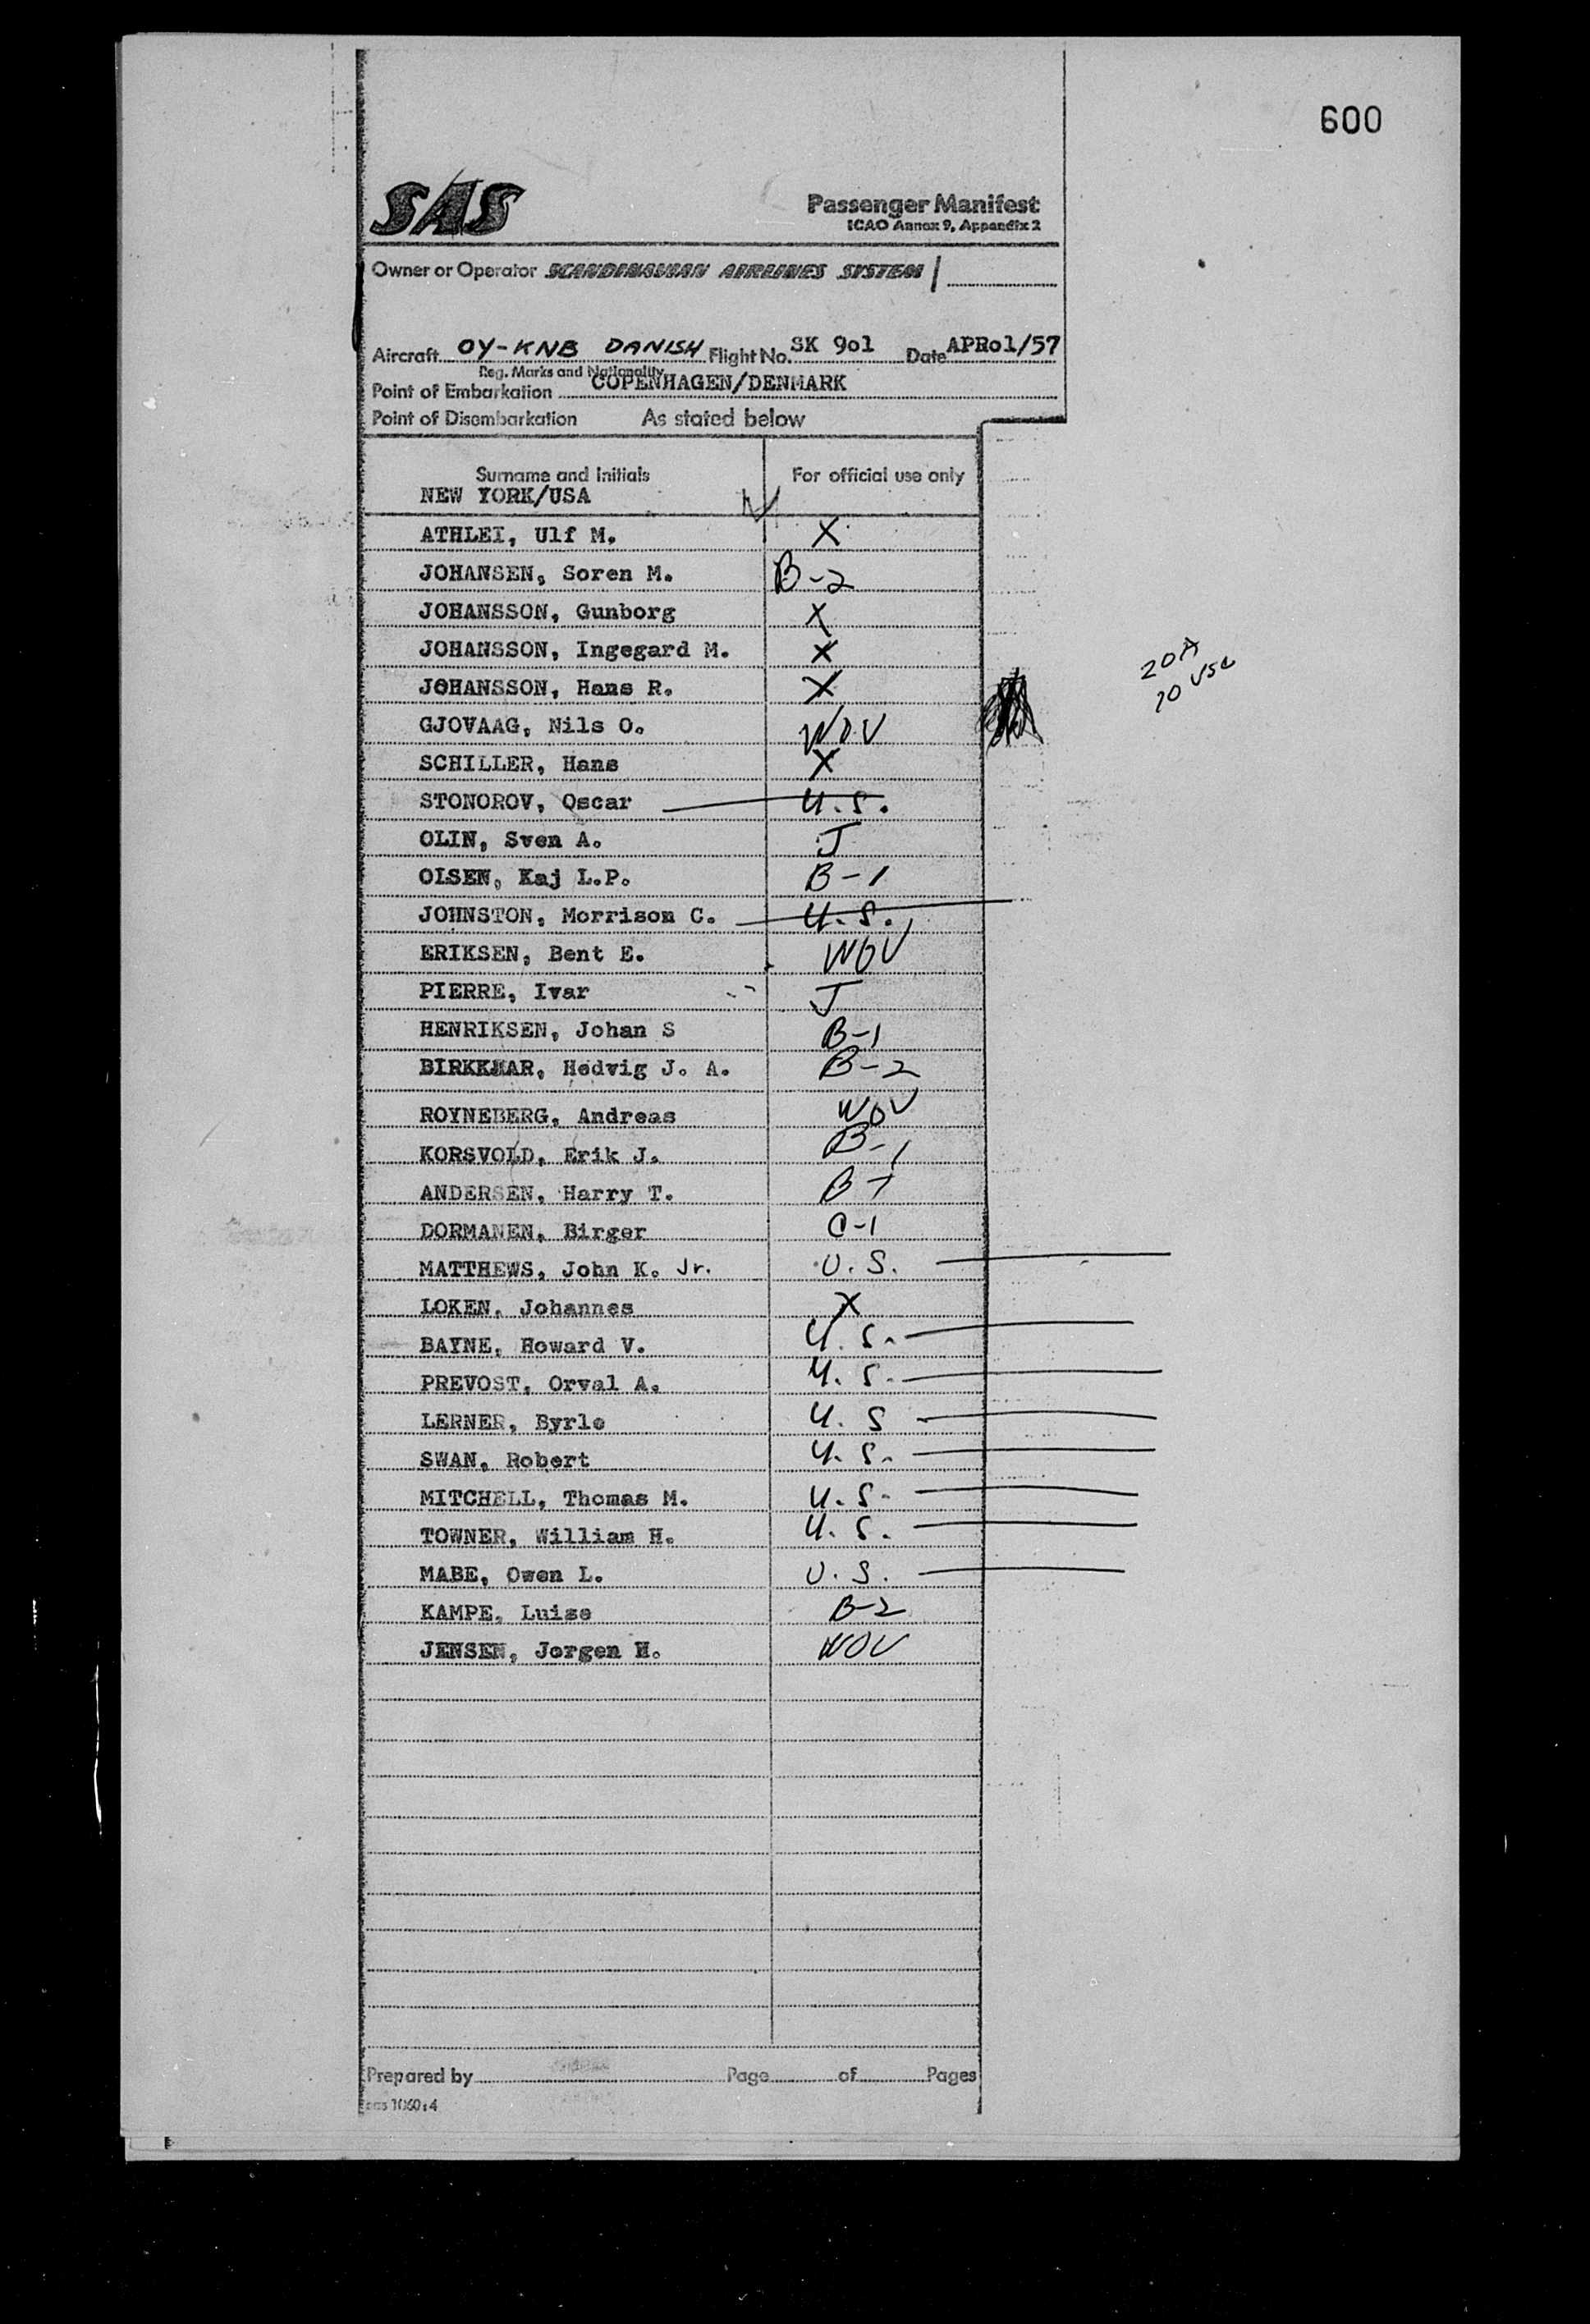 600
SAS
Passenger Manifest
ICAO Annex 9, Appendix 2
Owner or Operator SCANDINAVIAN AIRLINES SYSTEM /
Aircraft OY-KNB DANISH Flight No. SK 9o1 Date APRo1/57
Reg. Marks and Nationality
Point of Embarkation COPENHAGEN/DENMARK
Point of Disembarkation As stated below
Surname and Initials For official use only
NEW YORK/USA
ATHLEI, Ulf M. X
JOHANSEN, Soren M. B-2
JOHANSSON, Gunborg X
JOHANSSON, Ingegard M. X
JOHANSSON, Hans R. X
20A
10 USC
GJOVAAG, Nils O. WOV
SCHILLER, Hans X
STONOROV, Oscar U.S.
OLIN, Sven A. J
OLSEN, Kaj L.P. B-1
JOHNSTON, Morrison C. U.S.
ERIKSEN, Bent E. WOV
PIERRE, Ivar J
HENRIKSEN, Johan S B-1
BIRKKJAR, Hedvig J. A. B-2
ROYNEBERG, Andreas WOV
KORSVOLD, Erik J. B-1
ANDERSEN, Harry T. B-1
DORMANEN, Birger C-1
MATTHEWS, John K. Jr. U.S.
LOKEN, Johannes X
BAYNE, Howard V. U.S.
PREVOST, Orval A. U.S.
LERNER, Byrle U.S
SWAN, Robert U.S.
MITCHELL, Thomas M. U.S.
TOWNER, William H. U.S.
MABE, Owen L. U.S.
KAMPE, Luise B-2
JENSEN, Jorgen H. WOV
Prepared by Page of Pages
sas 1060:4